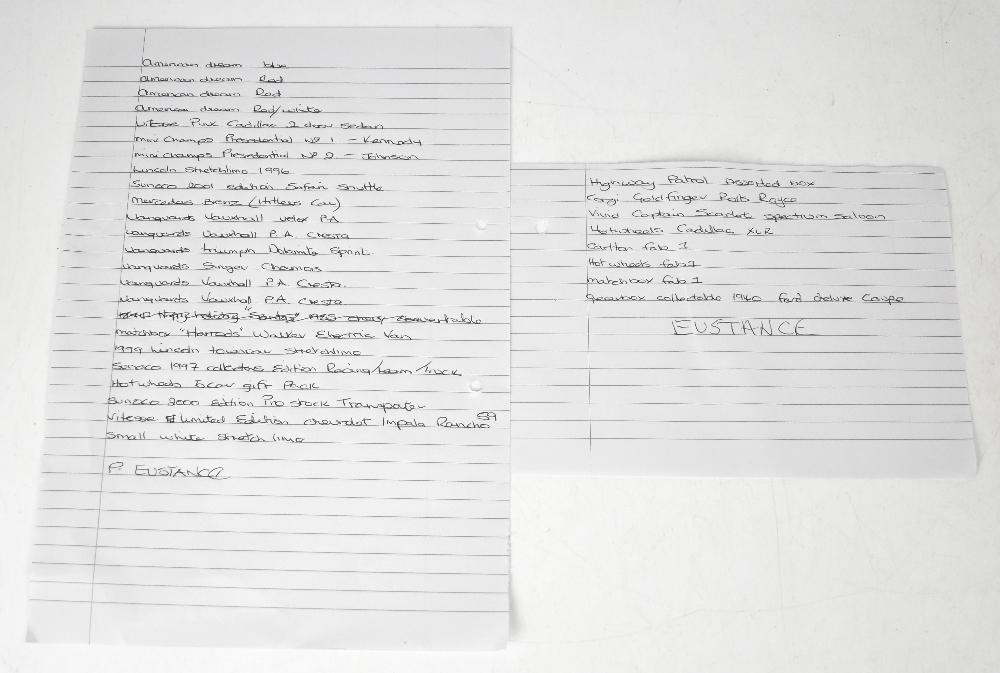 American dream blue
American dream Red
American dream Red
American dream Red/white
Vitesse Pink Cadillac 2 door sedan
mini Champs Presidential Nº 1 - Kennedy
mini champs Presidential Nº 2 - Johnson
Lincoln Stretchlimo 1996
Sunoco 2001 edition Safari Shuttle
Mercedes Benz (Hitlers Car)
Vanguards Vauxhall Velox P.A
Vanguards Vauxhall P.A. Cresta
Vanguards triumph Dolomite Sprint.
Vanguards Singer Chamois
Vanguards Vauxhall P.A. Cresta.
Vanguards Vauxhall P.A. Cresta
convertable
matchbox "Harrods" Walker Electric Van
1999 Lincoln towncar stretchlimo
Sunoco 1997 collectors Edition Racing/team/truck
Hotwheels 5 car gift Pack
Sunoco 2000 Edition Pro stock Transpoter
Vitesse Limited Edition chevrolet Impala Rancho 59
Small white stretch limo
P. EUSTANCE
Highway Patrol Assorted box
Corgi Goldfinger Rolls Royce
Vivid Captain Scarlets spectrum Saloon
Hotwheels Cadillac XLR
Carlton fab 1
Hot wheels fab 1
matchbox fab 1
Gearbox collectable 1940 ford deluxe Coupe
EUSTANCE